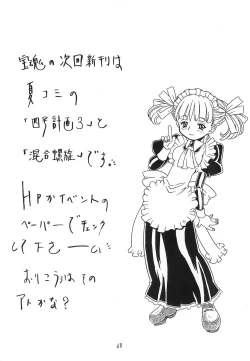 宝魂の次回新刊は
夏コミの
「四号計画3」と
「混合螺旋」です。
HPかイベントの
ペーパーでチェック
して下さーい
おりこうさはての
アトかな?